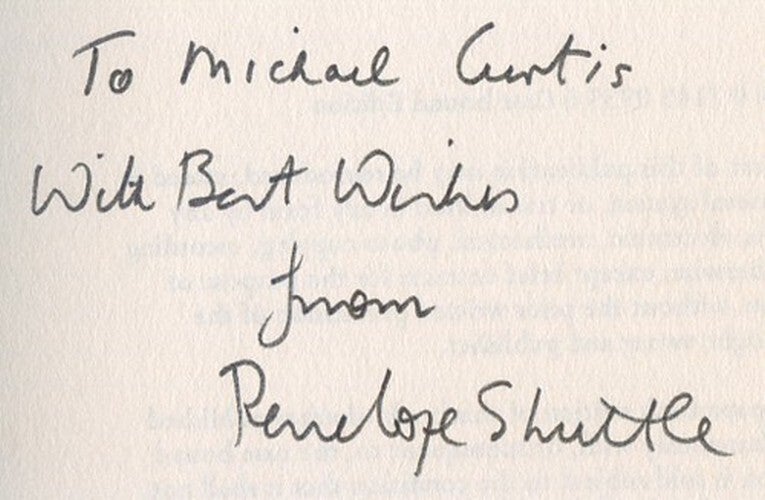 To Michael Curtis
With Best Wishes
from
Penelope Shuttle